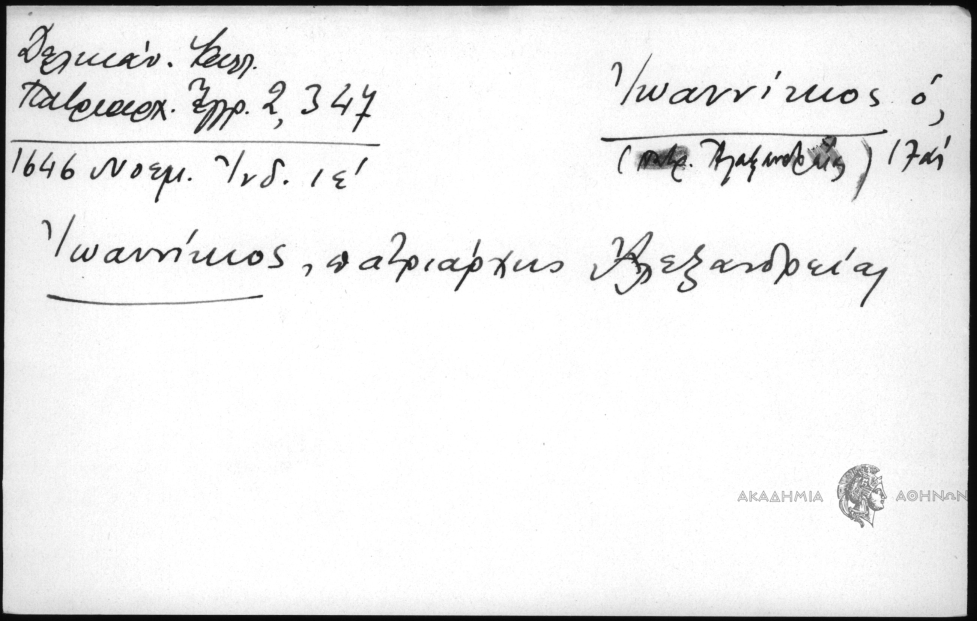 Δελικάν. Καλλ.
Πατριαρχ. Ἔγγρ. 2, 347
1646 Νοεμ. Ἰνδ. ιε΄
Ἰωαννίκιος ὁ,
(πατρ. Ἀλεξανδρείας) 17 αἰ
Ἰωαννίκιος, πατριάρχης Ἀλεξανδρείας
ΑΚΑΔΗΜΙΑ ΑΘΗΝΩΝ